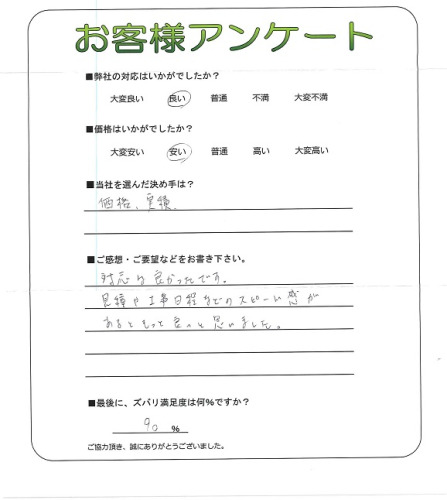 お客様アンケート
■弊社の対応はいかがでしたか？
大変良い 良い 普通 不満 大変不満
■価格はいかがでしたか？
大変安い 安い 普通 高い 大変高い
■当社を選んだ決め手は？
価格、実積
■ご感想・ご要望などをお書き下さい。
対応は良かったです。
見積や工事日程などのスピード感が
あるともっと良いと思いました。
■最後に、ズバリ満足度は何%ですか？
90 %
ご協力頂き、誠にありがとうございました。